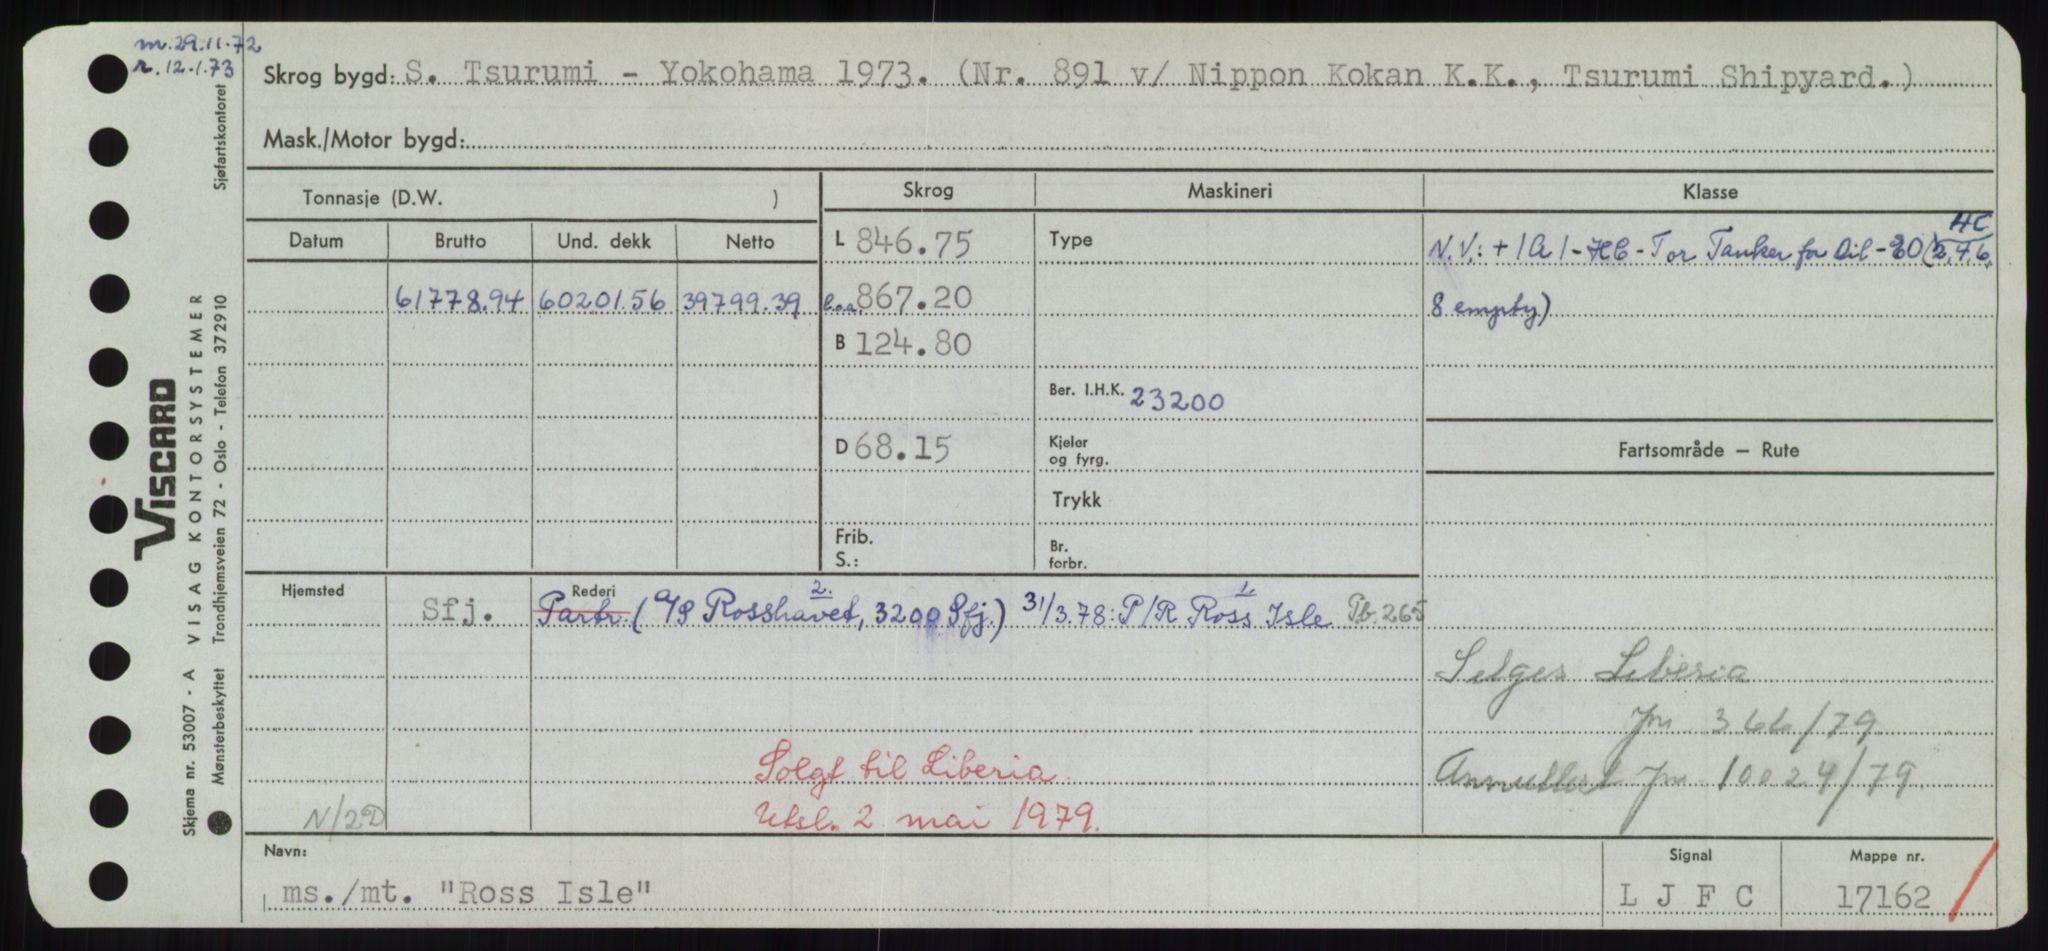 m. 29.11.72
r. 12.1.73
Skrog bygd: S. Tsurumi - Yokohama 1973. (Nr. 891 v/ Nippon Kokan K.K., Tsurumi Shipyard.)
Mask./Motor bygd:
Tonnasje (D.W. )
Skrog
Maskineri
Klasse
Datum
Brutto
Und. dekk
Netto
L 846.75
Type
HC
N.V.: + 1A1 - HC - T or Tanker for Oil - EO (2, 4, 6,
61778.94 60201.56 39799.39
l.o.a. 867.20
8 empty)
B 124.80
Ber. I.H.K. 23200
D 68.15
Kjeler
og fyrg.
Fartsområde — Rute
Trykk
Frib.
S.:
Br.
forbr.
Hjemsted
Sfj.
Rederi
2.
1.
Partr. (A/S Rosshavet, 3200 Sfj.) 31/3.78: P/R Ross Isle Pb. 265
Selges Liberia
Jnr. 366/79
Solgt til Liberia
Annullert Jnr. 10024/79
Utsl. 2 mai 1979.
N/2D
Navn:
ms./mt. "Ross Isle"
Signal
L J F C
Mappe nr.
17162
VISCARD
Skjema nr. 53007 - A VISAG KONTORSYSTEMER
Mønsterbeskyttet Trondhjemsveien 72 - Oslo - Telefon 372910
Sjøfartskontoret